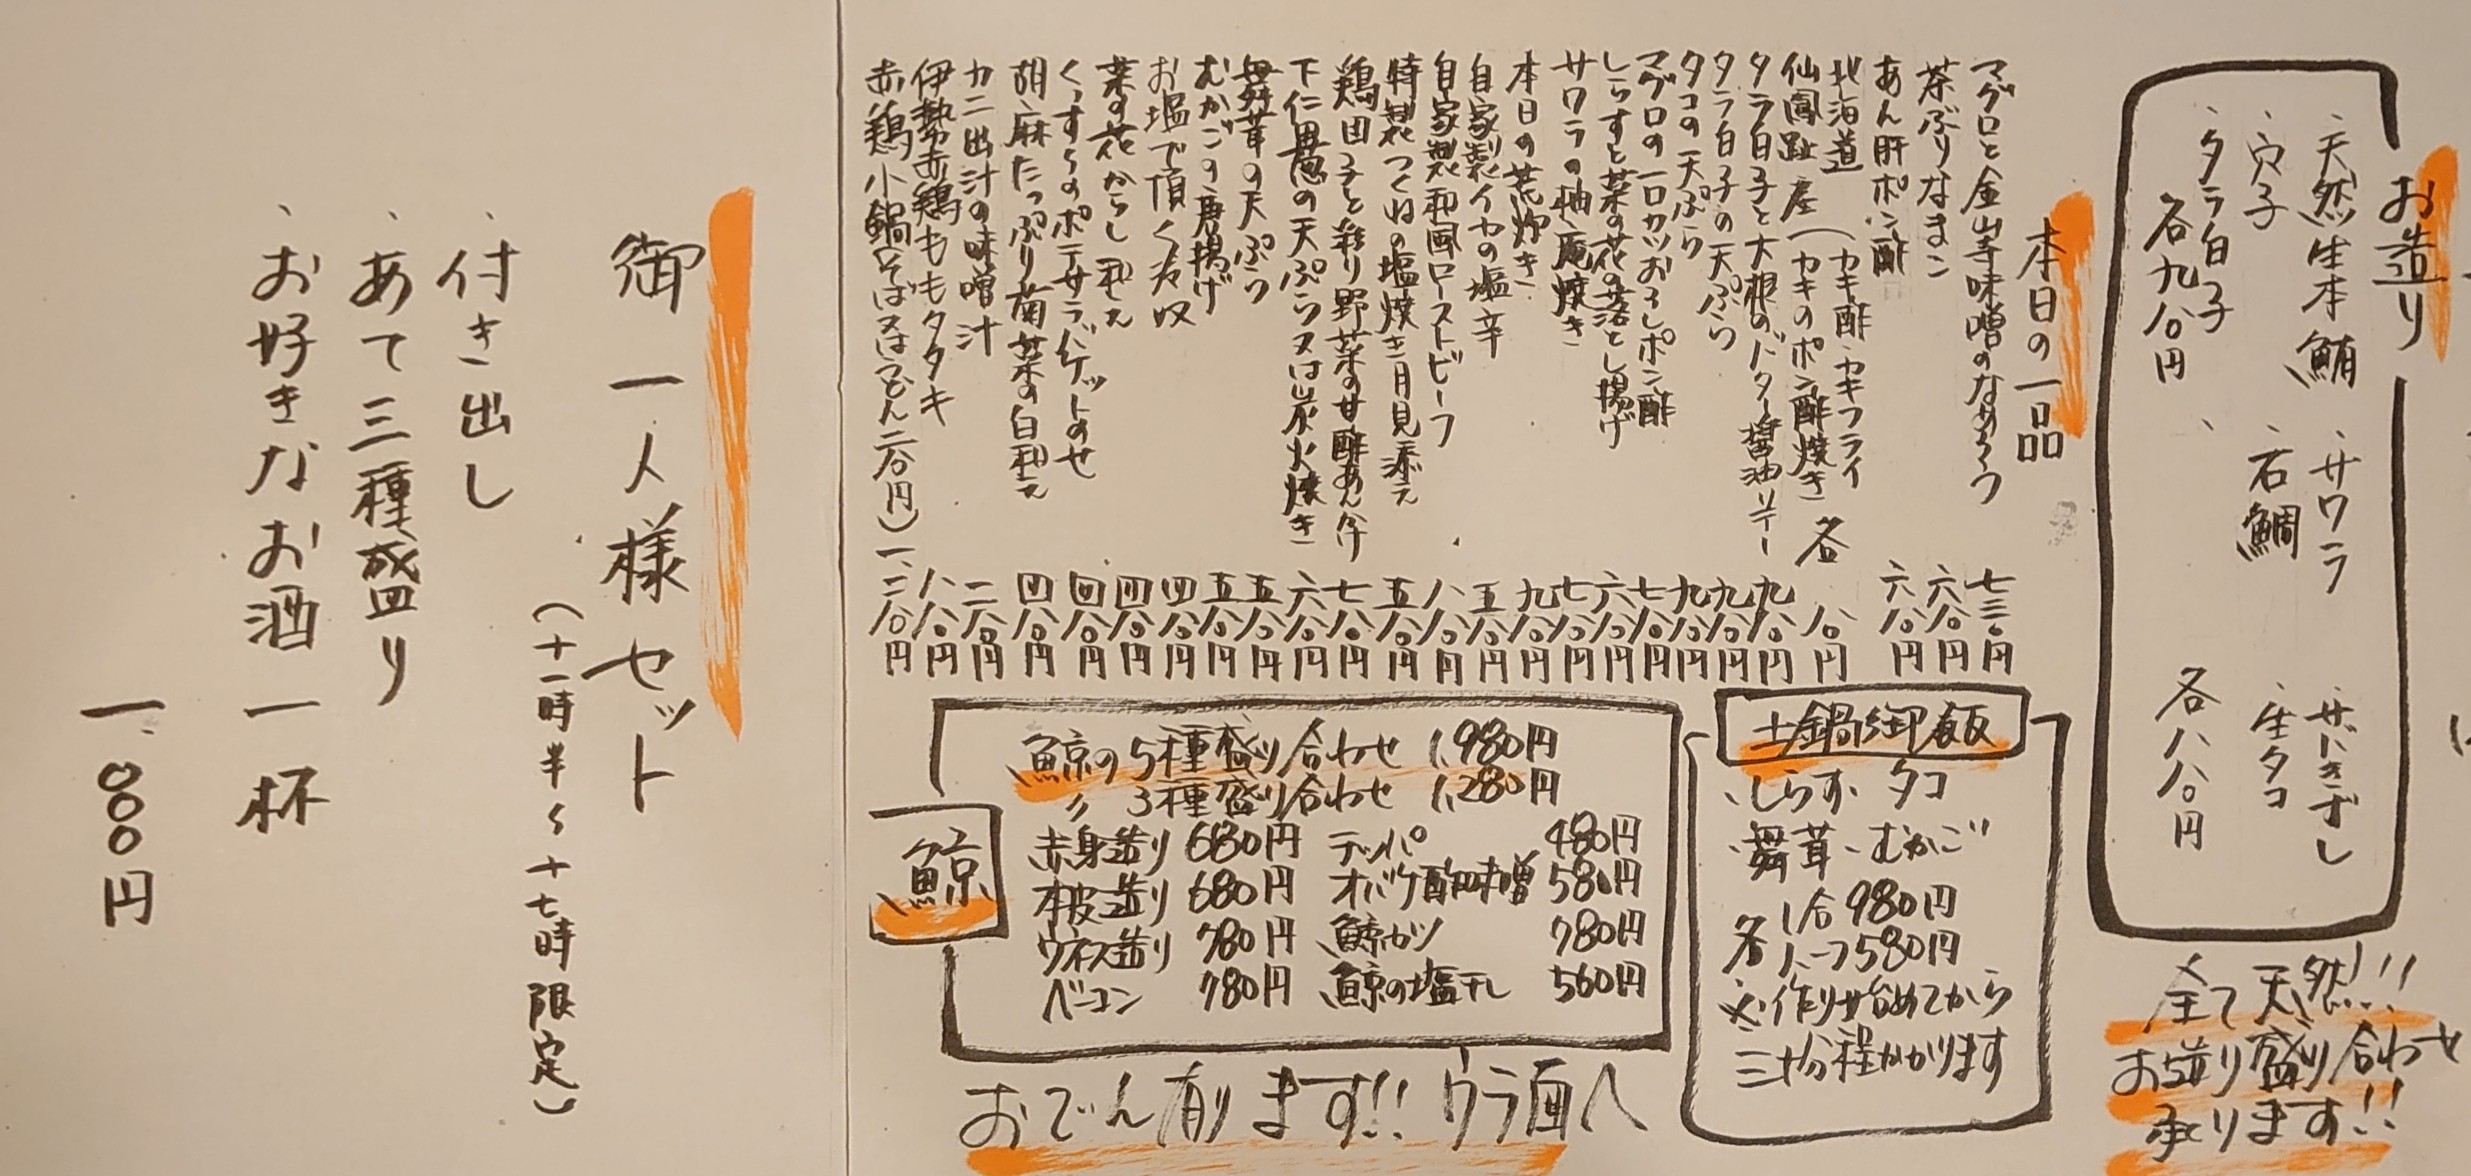 お造り
、天然生本鮪 、サワラ 、サバきずし
、穴子 、石鯛 、生タコ
、タラ白子
各九八〇円 各八八〇円
全て天然!!
お造り盛り合わせ
承ります!!
本日の一品
マグロと金山寺味噌のなめろう 七三〇円
茶ぶりなまこ 六八〇円
あん肝ポン酢 六八〇円
北海道 (カキ酢・カキフライ
仙鳳趾産 (カキのポン酢焼き 各 八〇円
タラ白子と大根のバター醤油ソテー 九八〇円
タラ白子の天ぷら 九八〇円
タコの天ぷら 九八〇円
マグロの一口カツおろしポン酢 七八〇円
しらすと菜の花の落とし揚げ 六八〇円
サワラの柚庵焼き 七八〇円
本日の荒炊き 九八〇円
自家製イカの塩辛 五八〇円
自家製和風ローストビーフ 八八〇円
特製つくねの塩焼き月見添え 五八〇円
鶏団子と彩り野菜の甘酢あんかけ 七八〇円
下仁田葱の天ぷら又は炭火焼き 六八〇円
舞茸の天ぷら 五八〇円
むかごの唐揚げ 五八〇円
お塩で頂く冷奴 四八〇円
菜の花からし和え 四八〇円
くずらのポテサラバケットのせ 四八〇円
胡麻たっぷり菊菜の白和え 四八〇円
カニ出汁の味噌汁 二八〇円
伊勢赤鶏ももタタキ 八八〇円
赤鶏小鍋そば又はうどん二八〇円) 一、二八〇円
土鍋御飯
・しらす・タコ
・舞茸・むかご
各 1合980円
ハーフ580円
※作り始めてから
三十分程かかります
鯨
鯨の5種盛り合わせ 1,980円
〃 3種盛り合わせ 1,280円
赤身造り 680円 テッパ 480円
本皮造り 680円 オバケ酢味噌 580円
ウネス造り 780円 鯨カツ 780円
ベーコン 780円 鯨の塩干し 560円
おでん有ります!!ウラ面へ
御一人様セット
(十一時半〜十七時限定)
、付き出し
、あて三種盛り
、お好きなお酒一杯
一、〇〇〇円